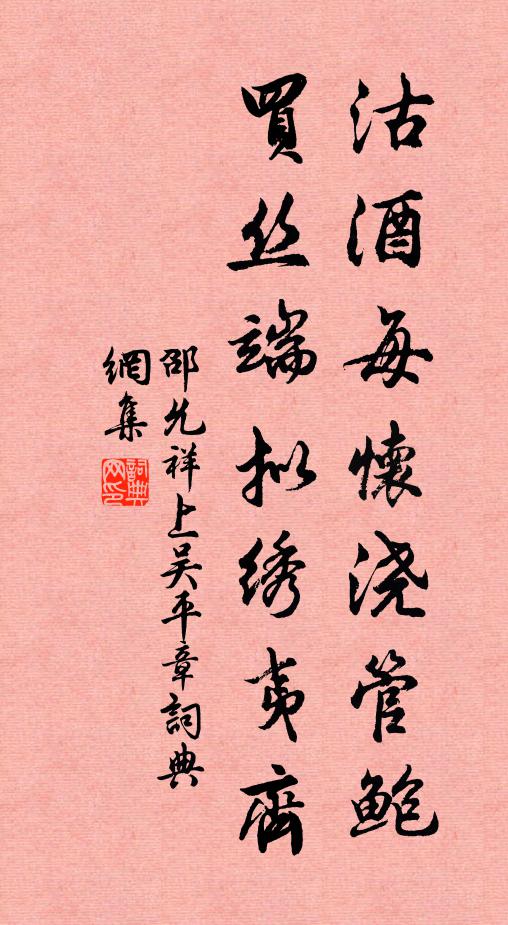 沽酒每懷浇管鲍
買丝端拟绣夷齊
邵允祥上吴平章詞典
網集
詞典網印